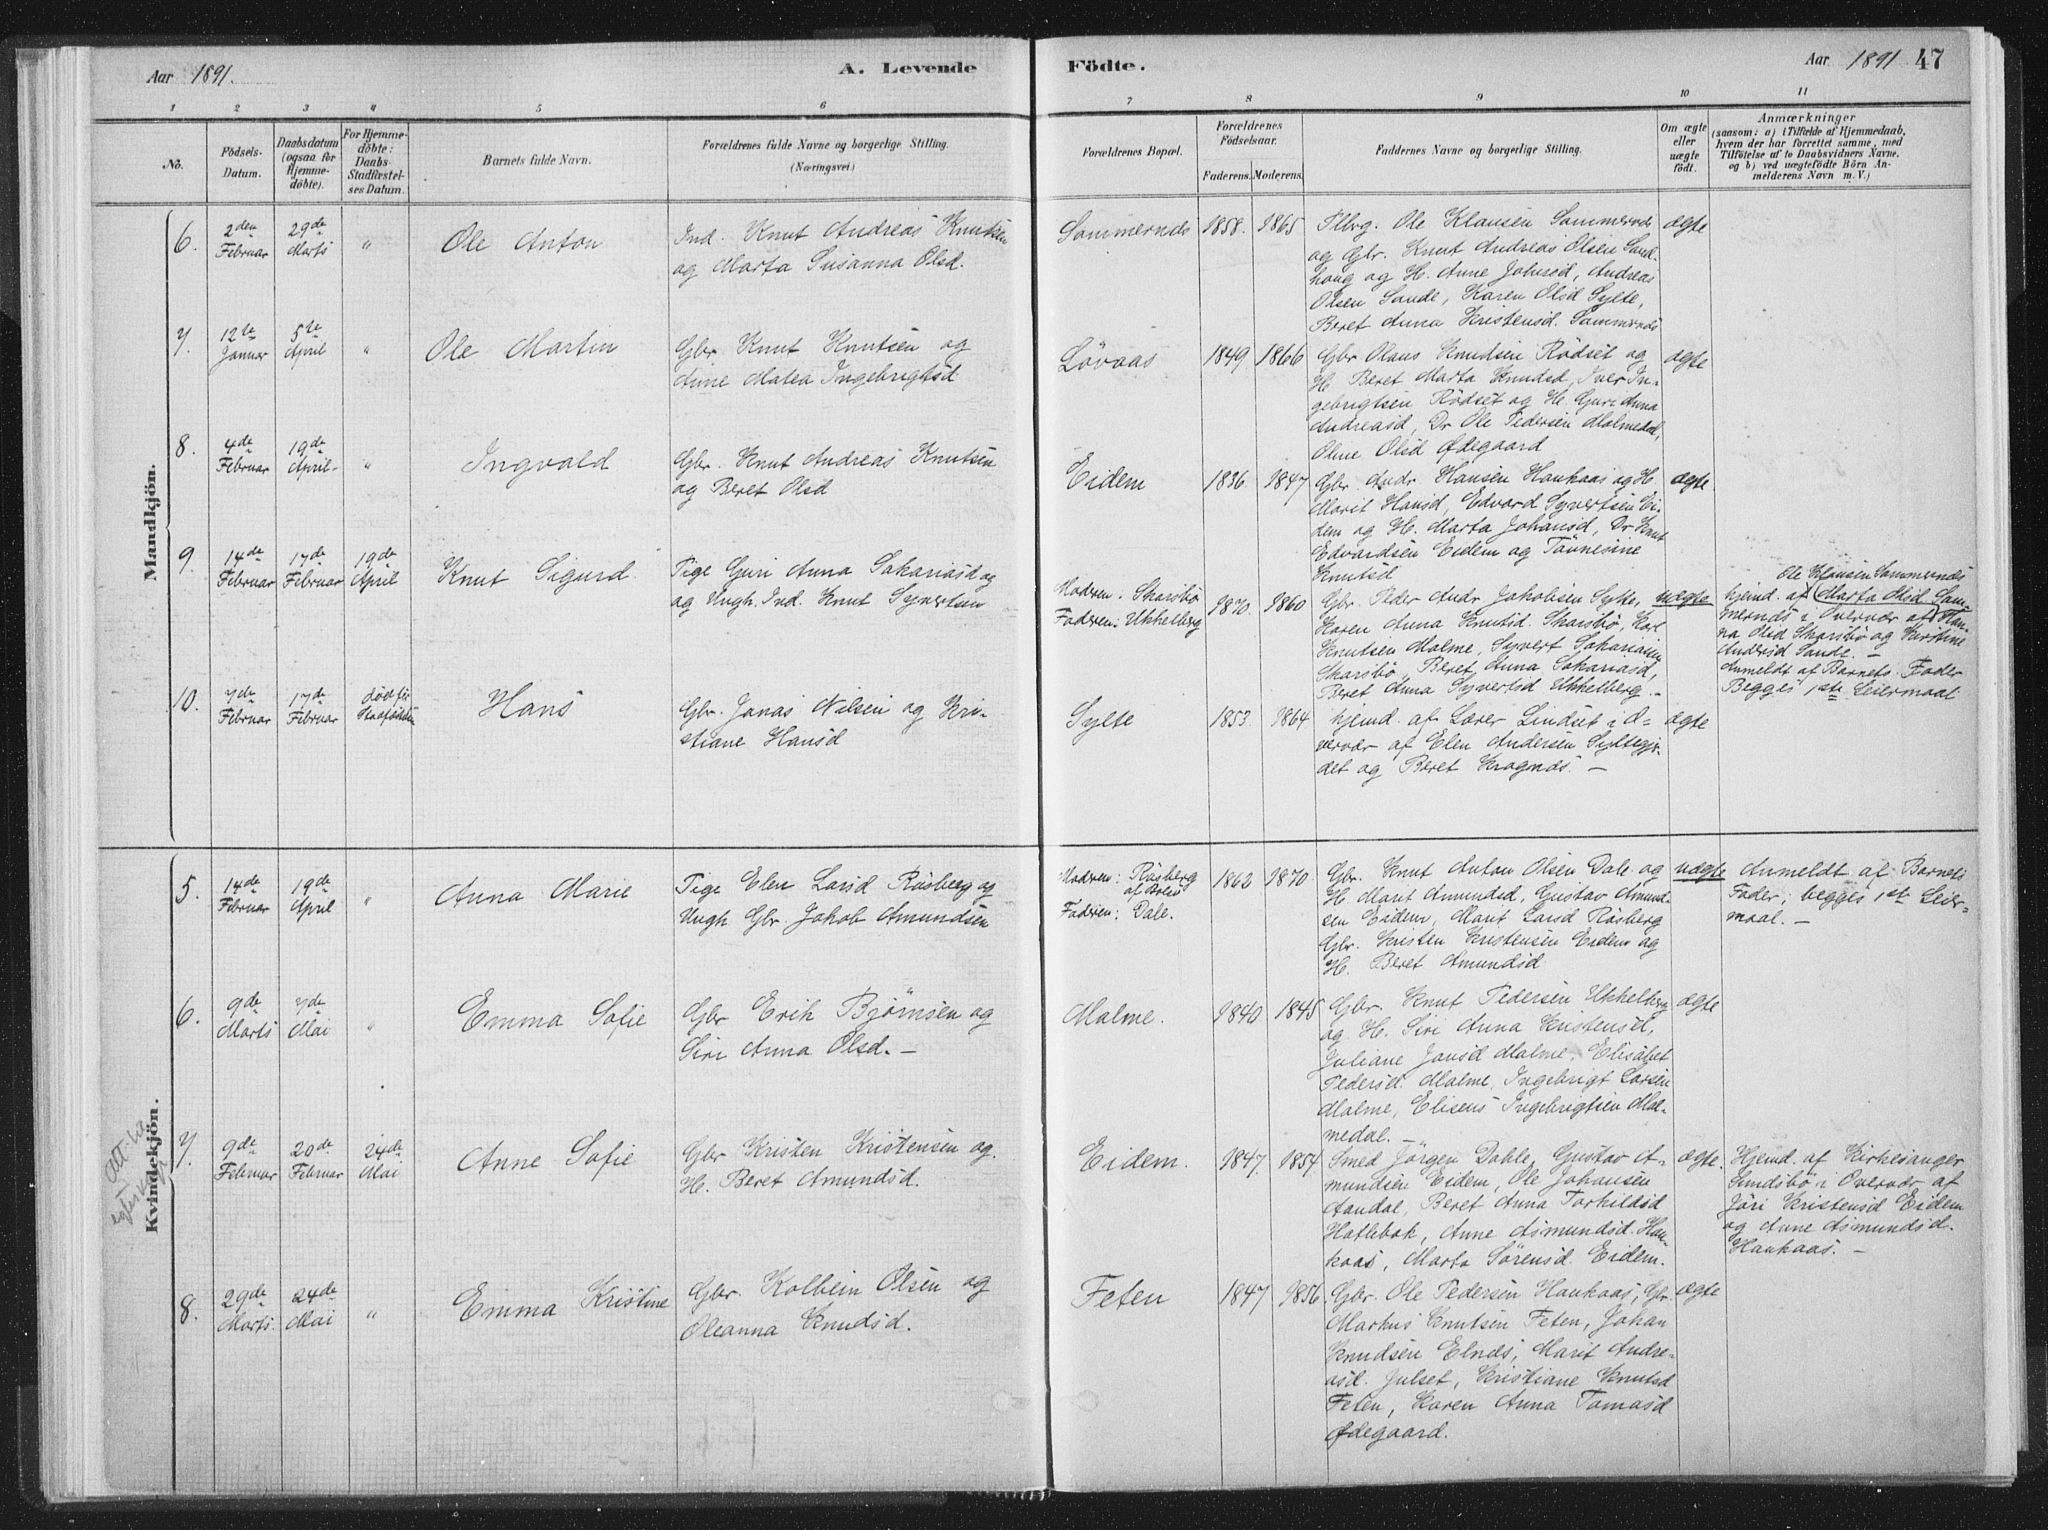 Aar 1891.
A. Levende
Födte.
Aar 1891
47
1 2 3 4 5 6 7 8 9 10 11
No.
Födsels-
Datum.
Daabsdatum
(ogsaa for
Hjemme-
döbte).
For Hjemme-
döbte:
Daabs-
Stadfæstel-
ses Datum.
Barnets fulde Navn.
Forældrenes fulde Navne og borgerlige Stilling.
(Næringsvei.)
Forældrenes Bopæl.
Forældrenes
Födselsaar.
Faderens. Moderens.
Faddernes Navne og borgerlige Stilling.
Om ægte
eller
uægte
födt.
Anmærkninger
(saasom: a) i Tilfælde af Hjemmedaab,
hvem der har forrettet samme, med
Tilföielse af to Daabsvidners Navne,
og b) ved uægtefödte Börn An-
melderens Navn m. V.)
Mandkjön.
6.
2den
Februar
29de
Marts
"
Ole Anton
Ind. Knut Andreas Knutsen
og Marta Susanna Olsd.
Sammernes
1858.
1865
Flbvg. Ole Klausen Sammernes
og Gbr. Knut Andreas Olsen Sand-
houg og H. Anne Johnsd, Andreas
Olsen Sande, Karen Olsd Sylte,
Beret Anna Kristensd. Sammernes
ægte
7.
12te
Januar
5te
April
"
Ole Martin
Gbr Knut Knutsen og
Anne Matea Ingebrigtsd
Løvaas
1849
1866
Gbr Olaus Knudsen Rødset og
H. Beret Marta Knudsd, Iver In-
gebrigtsen Rødset og H. Guri Anna
Andreasd, Dr Ole Pedersen Malmedal,
Oline Olsd Ødegaard
ægte
8.
4de
Februar
19de
April
"
Ingvald
Gbr. Knut Andreas Knutsen
og Beret Olsd
Eidem
1836
1847
Gbr. Andr Hansen Haukaas og H.
Marit Hansd, Edvard Syvertsen Ei-
dem og H. Marta Johansd, Dr Knut
Edvardsen Eidem og Tønnesine
Knutsd
ægte.
9.
14de
Februar
17de
Februar
19de
April
Knut Sigurd
Pige Guri Anna Sakariasd og
og Ungk. Ind. Knut Syvertsen
Moderen: Skarsbø
Faderen: Ukkelberg
1870.
1860
Gbr. Peder Andr Jakobsen Sylte,
Karen Anna Knutsd. Skarsbø, Karl
Knutsen Malme, Syvert Sakariassen
Skarsbø, Beret Anna Sakariasd,
Beret Anna Syvertsd Ukkelberg. -
uægte
Ole Klausen Sammernes
hjemd. af Marta Olsd Sam-
mernes i Overvær af Han-
na Olsd Skarsbø og Kirstine
Andersd Sande. -
Anmeldt af Barnets Fader
Begges 1ste Leiermaal
10.
7de
Februar
17de
Februar
død før
Stadfæstelsen
Hans
Gbr. Jonas Nilsen og Kri-
stiane Hansd
Sylte
1853.
1864
hjemd. af Lærer Lindset i O-
vervær af Elen Andersen Syltegjer-
det og Beret Kragnes. -
ægte
Kvindekjön.
5.
14de
Februar
19de
April
"
Anna Marie
Pige Elen Larsd Røsberg og
Ungk Gbr. Jakob Amundsen
Moderen: Røsberg
Faderen: Dale.
1862
1870.
Gbr. Knut Anton Olsen Dale og
H Marit Amundsd, Gustav Amund-
sen Eidem, Marit Larsd Røsberg
Gbr. Kristen Kristensen Eidem og
H. Beret Amundsd
uægte
Anmeldt af Barnets
Fader; begges 1ste Leier-
maal. -
6.
9de
Marts
7de
Mai
"
Emma Sofie
Gbr Erik Bjørnsen og
Siri Anna Olsd. -
Malme.
1840
1845
Gbr. Knut Pedersen Ukkelberg
og H. Siri Anna Kristensd,
Juliane Jansd Malme, Elisabet
Pedersd. Malme, Ingebrigt Larsen
Malme, Elisens Ingebrigtsen Mal-
medal. -
ægte
7.
9de
Februar
20de
Februar
24de
Mai
Anne Sofie
Gbr Kristen Kristensen og
H. Beret Amundsd.
Eidem.
1847.
1854
Smed Jørgen Dahle, Gustav A-
mundsen Eidem, Ole Johansen
Aandal, Beret Anna Torkildsd
Hatlebak, Anne Asmundsd. Hau-
kaas, Marta Sørensd. Eidem.
ægte.
Hjemd. af Kirkesanger
Sundsbø i Overvær af
Jøri Kristensd Eidem
og Anne Asmundsd.
Haukaas. -
8.
29de
Marts.
24de
Mai
"
Emma Kristine
Gbr. Kolbein Olsen og
Oleanna Knudsd.
Feten
1847
1856.
Gbr. Ole Pedersen Haukaas, Gbr.
Markus Knutsen Feten, Johan
Knudsen Elnes, Marit Andre-
asd. Julset, Kristiane Knutsd
Feten, Karen Anna Tomasd
Ødegaard.
ægte